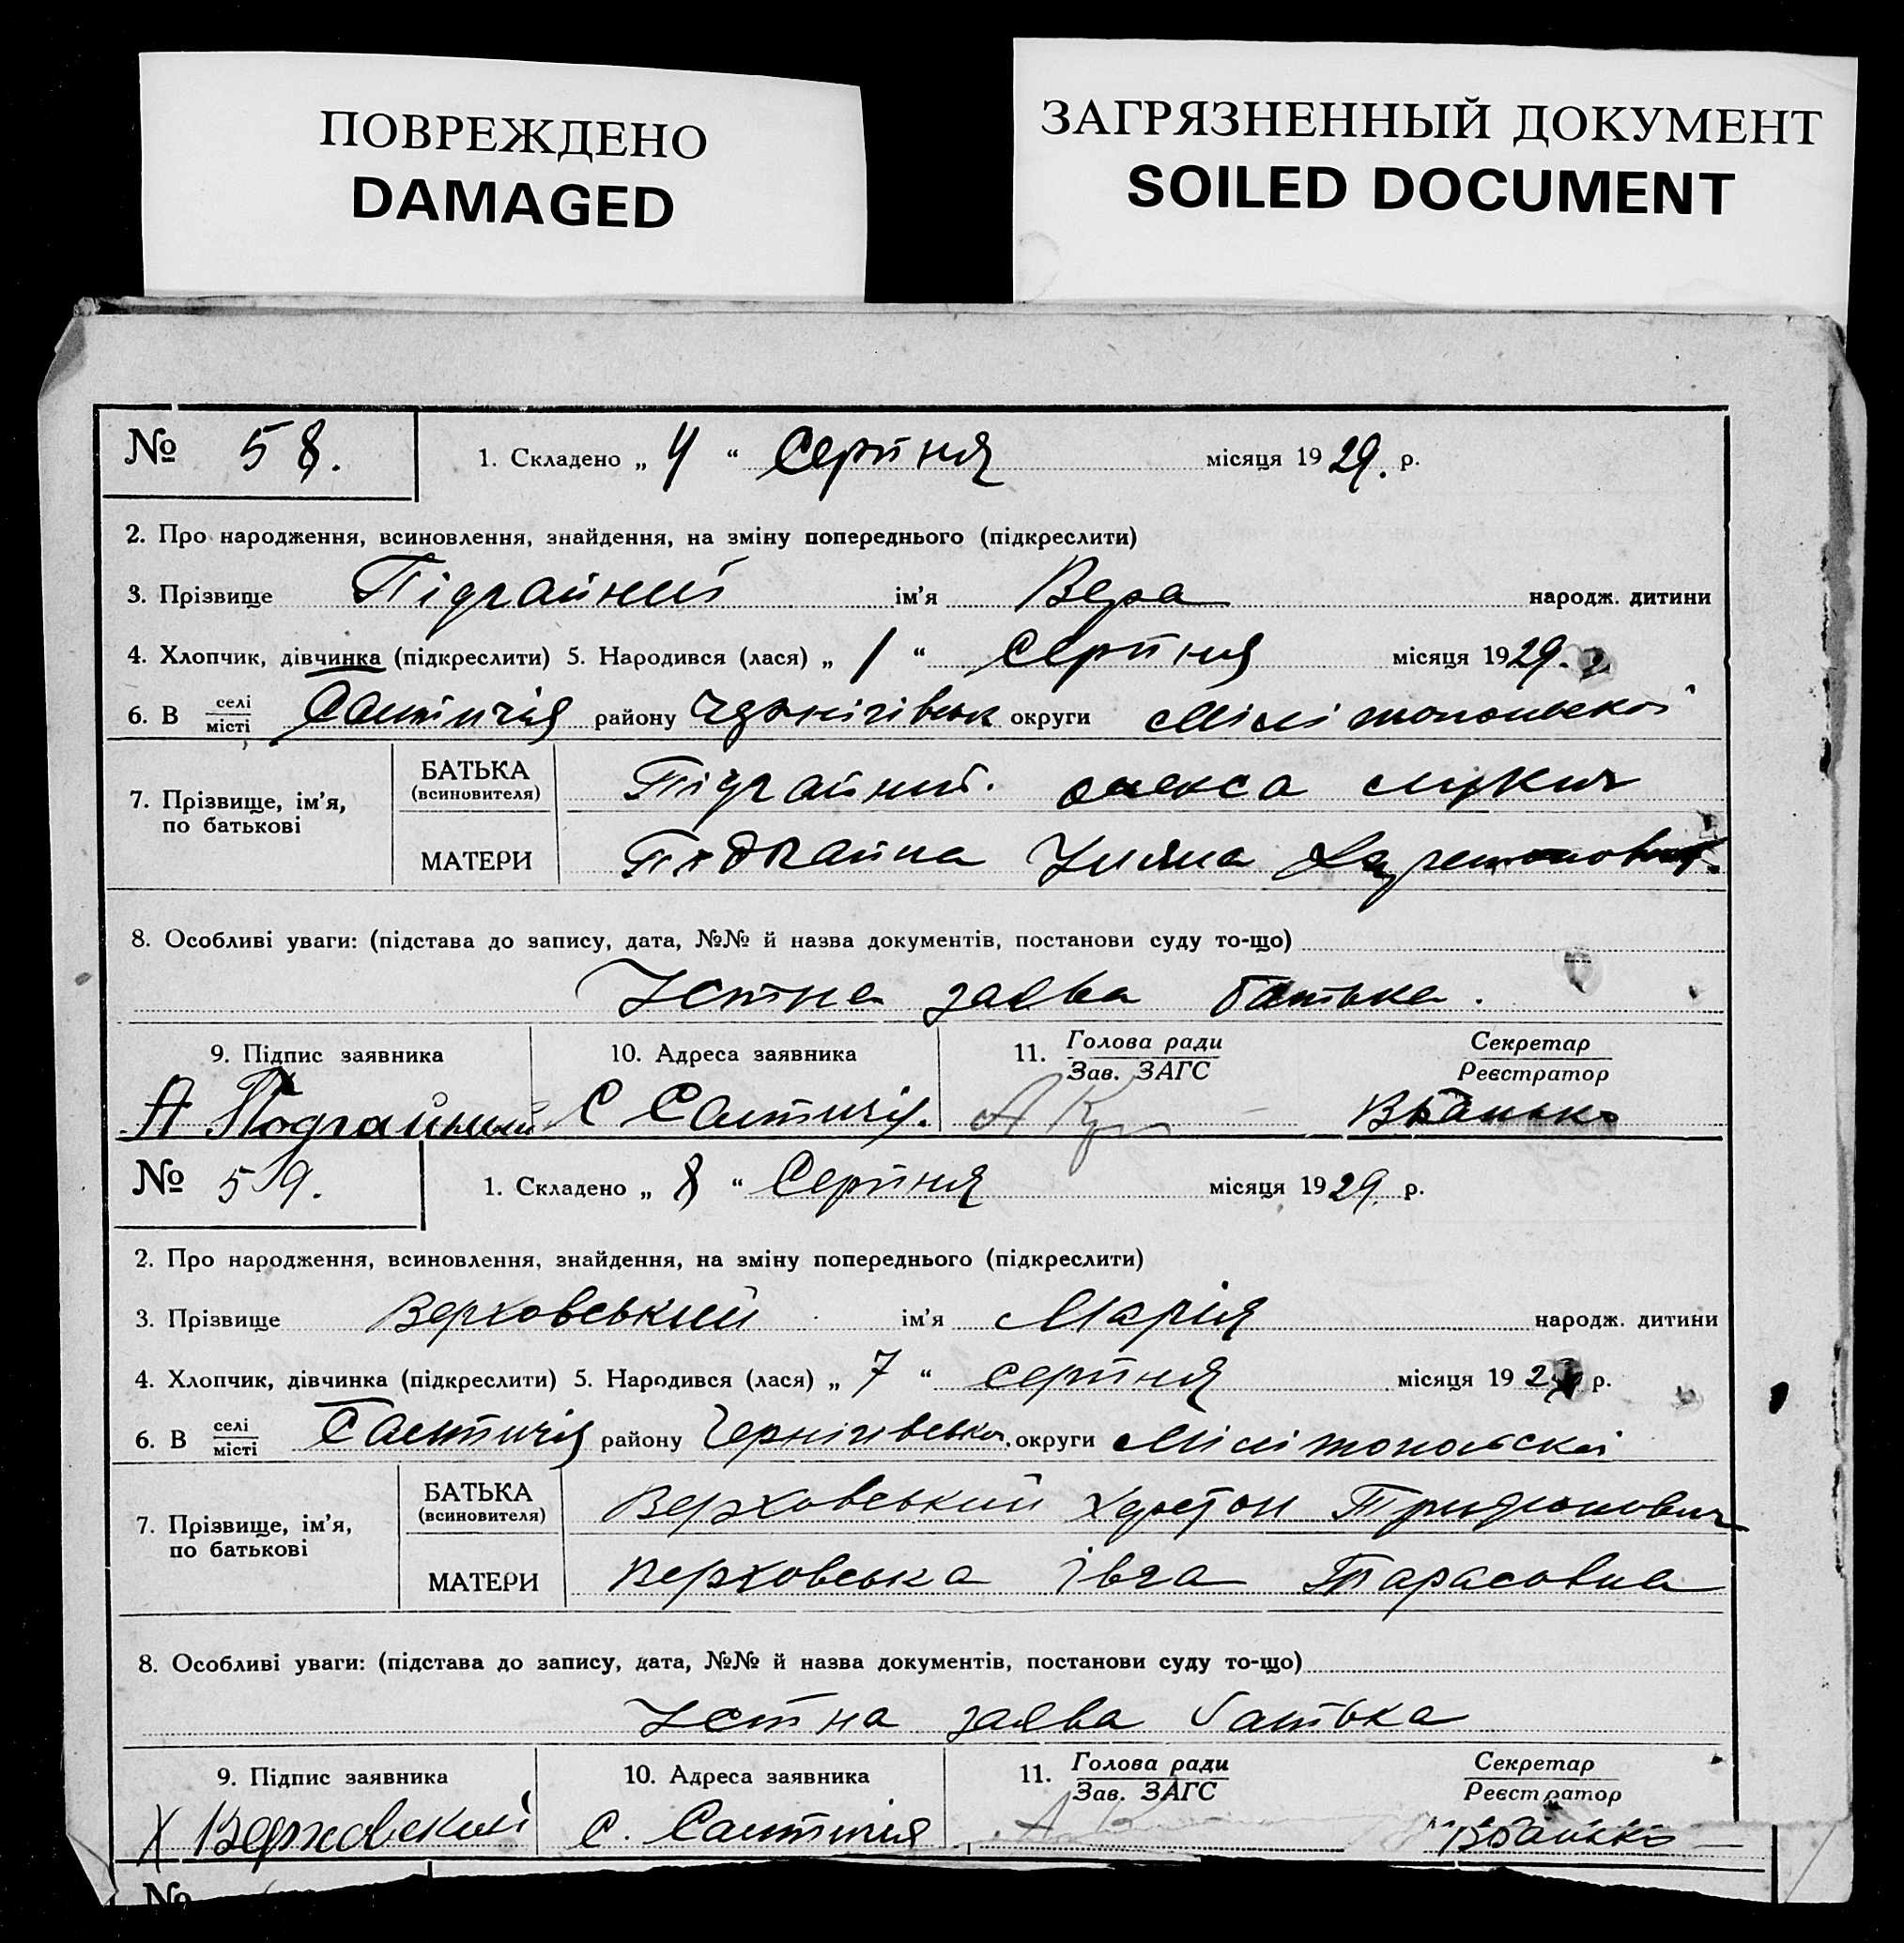 ПОВРЕЖДЕНО
DAMAGED
ЗАГРЯЗНЕННЫЙ ДОКУМЕНТ
SOILED DOCUMENT
№ 58. 1. Складено „ 4 “ Серпня місяця 1929. р.
2. Про народження, всиновлення, знайдення, на зміну попереднього (підкреслити)
3. Прізвище Підгайний ім'я Вера народж. дитини
4. Хлопчик, дівчинка (підкреслити) 5. Народився (лася) „ 1 “ Серпня місяця 1929.
6. В селі
місті Салтичія району округи Мілітопольскої
7. Прізвище, ім'я,
по батькові
БАТЬКА
(всиновителя)
Підгайний. олекса
МАТЕРИ
Уляна
8. Особливі уваги: (підстава до запису, дата, №№ й назва документів, постанови суду то-що)
Устна заява батька.
9. Підпис заявника 10. Адреса заявника 11. Голова ради
Зав. ЗАГС
Секретар
Реєстратор
А Подгайный С Салтичія.
№ 59. 1. Складено „ 8 “ Серпня місяця 1929. р.
2. Про народження, всиновлення, знайдення, на зміну попереднього (підкреслити)
3. Прізвище Верховський ім'я Марія народж. дитини
4. Хлопчик, дівчинка (підкреслити) 5. Народився (лася) „ 7 “ серпня місяця 192 р.
6. В селі
місті Салтичія району округи Мілітопольскої
7. Прізвище, ім'я,
по батькові
БАТЬКА
(всиновителя)
Верховський
МАТЕРИ
Верховська Івга Тарасовна
8. Особливі уваги: (підстава до запису, дата, №№ й назва документів, постанови суду то-що)
Устна заява батька
9. Підпис заявника 10. Адреса заявника 11. Голова ради
Зав. ЗАГС
Секретар
Реєстратор
Х Верховский С. Салтичія
№